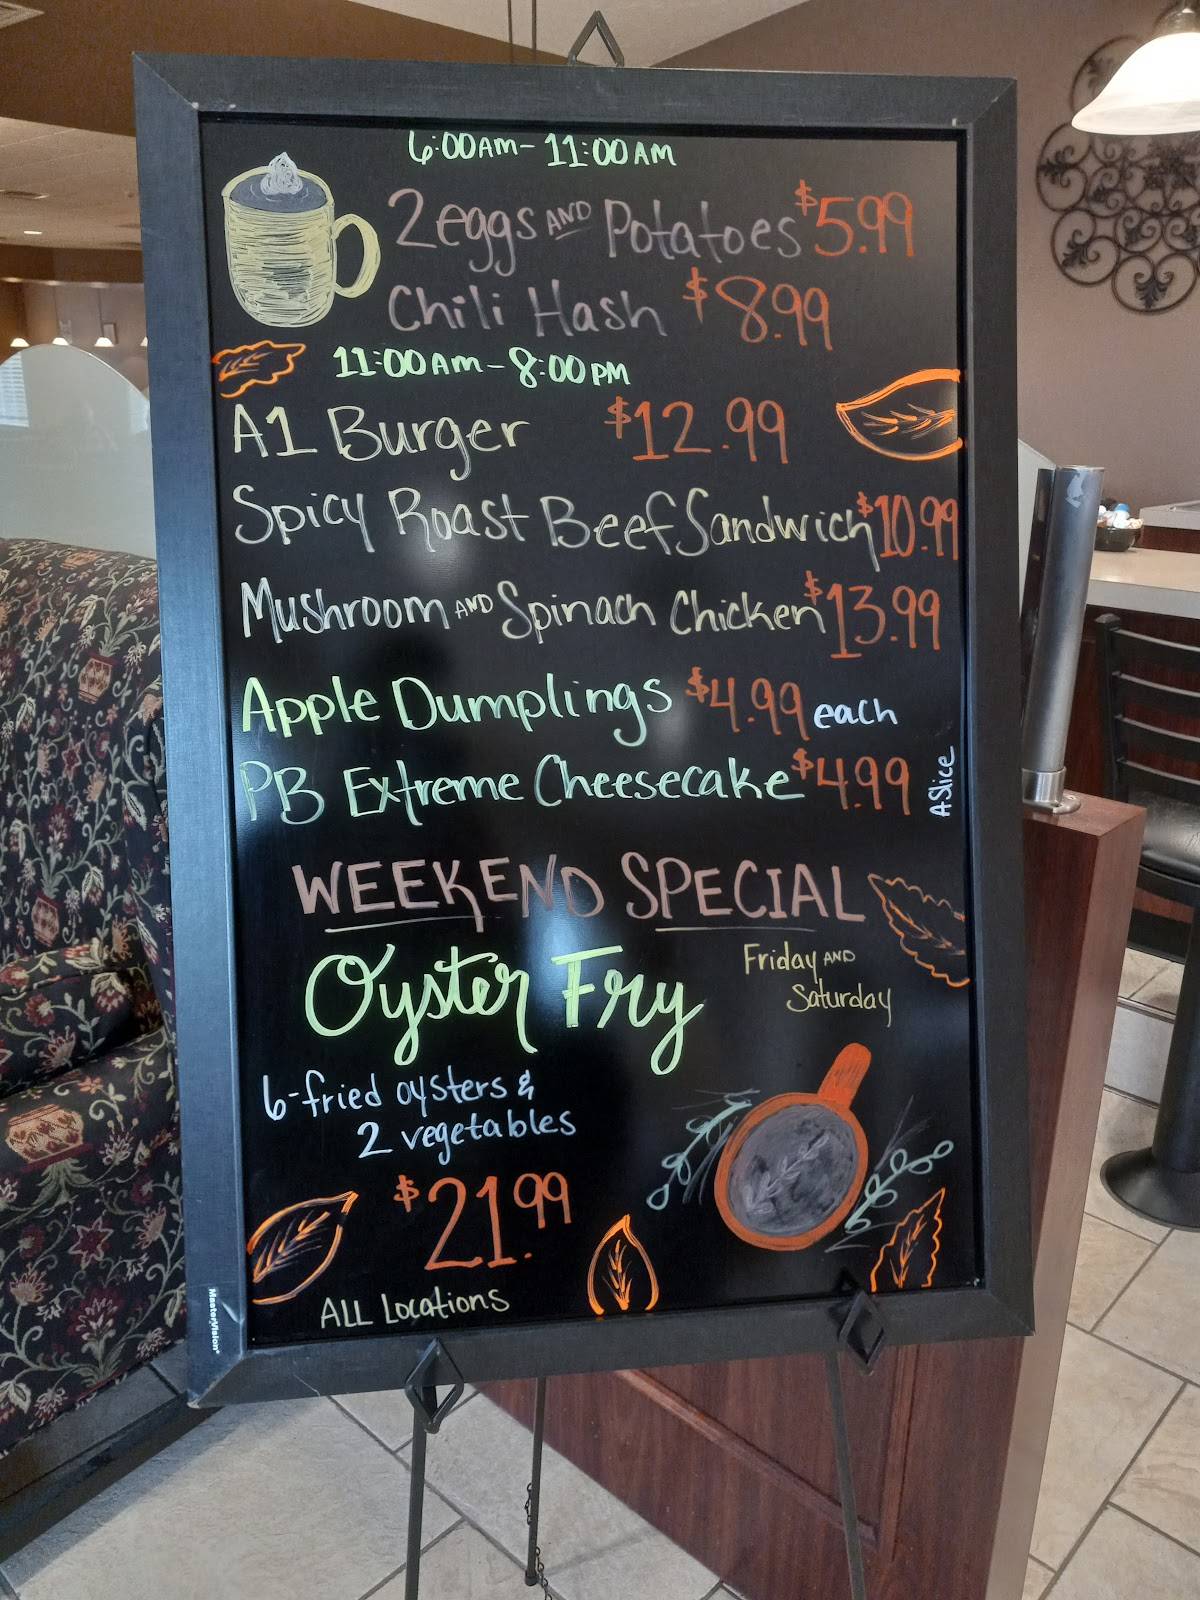 6:00AM - 11:00AM
2 eggs AND Potatoes $5.99
Chili Hash $8.99
11:00AM - 8:00PM
A1 Burger $12.99
Spicy Roast Beef Sandwich $10.99
Mushroom AND Spinach Chicken $13.99
Apple Dumplings $4.99 each
PB Extreme Cheesecake $4.99 A Slice
WEEKEND SPECIAL
Oyster Fry
Friday AND
Saturday
6-fried oysters &
2 vegetables
$21.99
ALL Locations
MasterVision